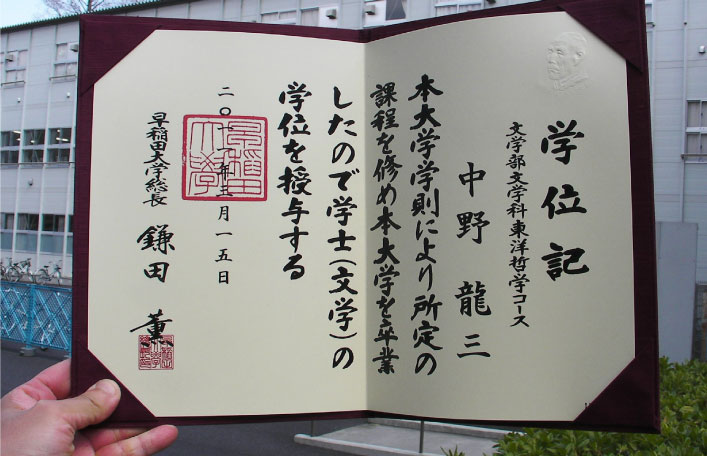 学位記
文学部文学科東洋哲学コース
中野 龍三
本大学学則により所定の
課程を修め本大学を卒業
したので学士(文学)の
学位を授与する
二〇 年三月一五日
早稲田大学総長 鎌田 薫